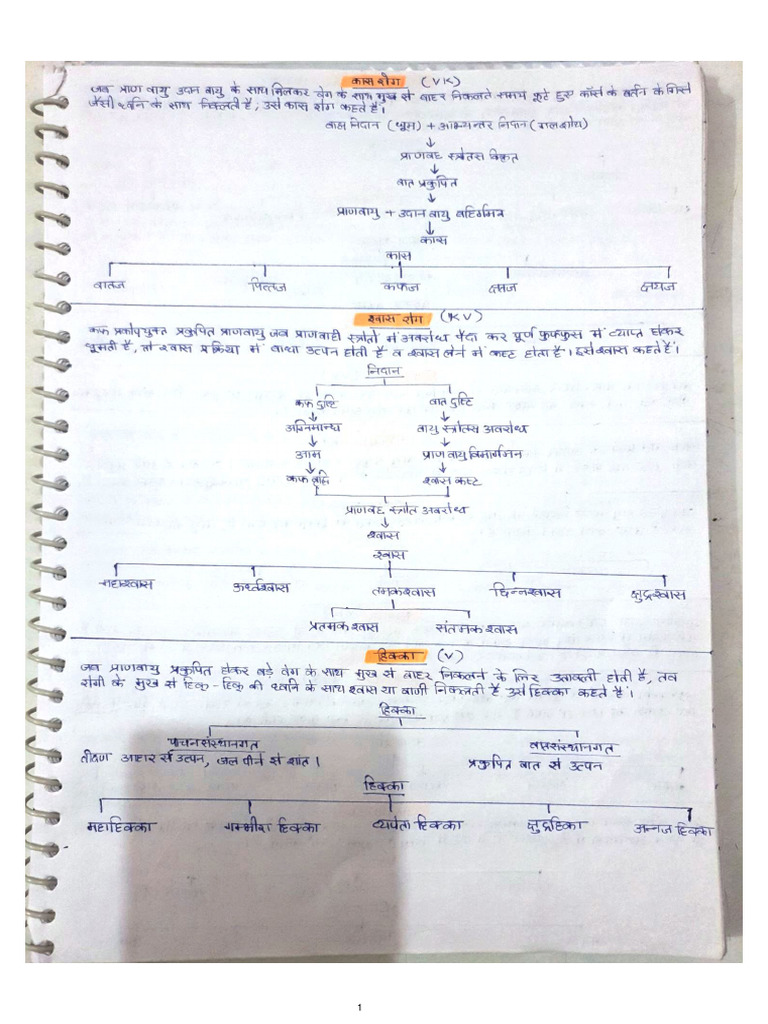 कास रोग (VK)
जब प्राण वायु उदान वायु के साथ मिलकर वेग के साथ मुख से बाहर निकलते समय फूटे हुए काँसे के बर्तन के गिरने
जैसी ध्वनि के साथ निकलती है, उसे कास रोग कहते है।
बाह्य निदान (धूम) + आभ्यन्तर निदान (गलशोथ)
↓
प्राणवह स्त्रोतस विकृत
↓
वात प्रकुपित
↓
प्राणवायु + उदान वायु बहिर्गमन
↓
कास
कास
वातज पित्तज कफज क्षतज क्षयज
श्वास रोग (KV)
कफ प्रकोपयुक्त प्रकुपित प्राणवायु जब प्राणवाही स्त्रोतों में अवरोध पैदा कर पूर्ण फुफ्फुस में व्याप्त होकर
घूमती है, तो श्वास प्रक्रिया में बाधा उत्पन होती है व श्वास लेने में कष्ट होता है। इसे श्वास कहते है।
निदान
कफ दुष्टि वात दुष्टि
↓ ↓
अग्निमान्ध वायु स्त्रोतस अवरोध
↓ ↓
आम प्राण वायु विमार्गमन
↓ ↓
कफ वृद्धि श्वास कष्ट
प्राणवह स्त्रोत अवरोध
↓
श्वास
श्वास
महाश्वास ऊर्ध्वश्वास तमकश्वास छिन्नश्वास क्षुद्रश्वास
प्रतमक श्वास संतमक श्वास
हिक्का (V)
जब प्राणवायु प्रकुपित होकर बड़े वेग के साथ मुख से बाहर निकलने के लिए उतावली होती है, तब
रोगी के मुख से हिक् - हिक् की ध्वनि के साथ श्वास या वाणी निकलती है उसे हिक्का कहते है।
हिक्का
पाचनसंस्थानगत वातसंस्थानगत
तीक्ष्ण आहार से उत्पन, जल पीने से शांत। प्रकुपित वात से उत्पन
हिक्का
महाहिक्का गम्भीरा हिक्का व्यपेता हिक्का क्षुद्रहिका अन्नज हिक्का
1